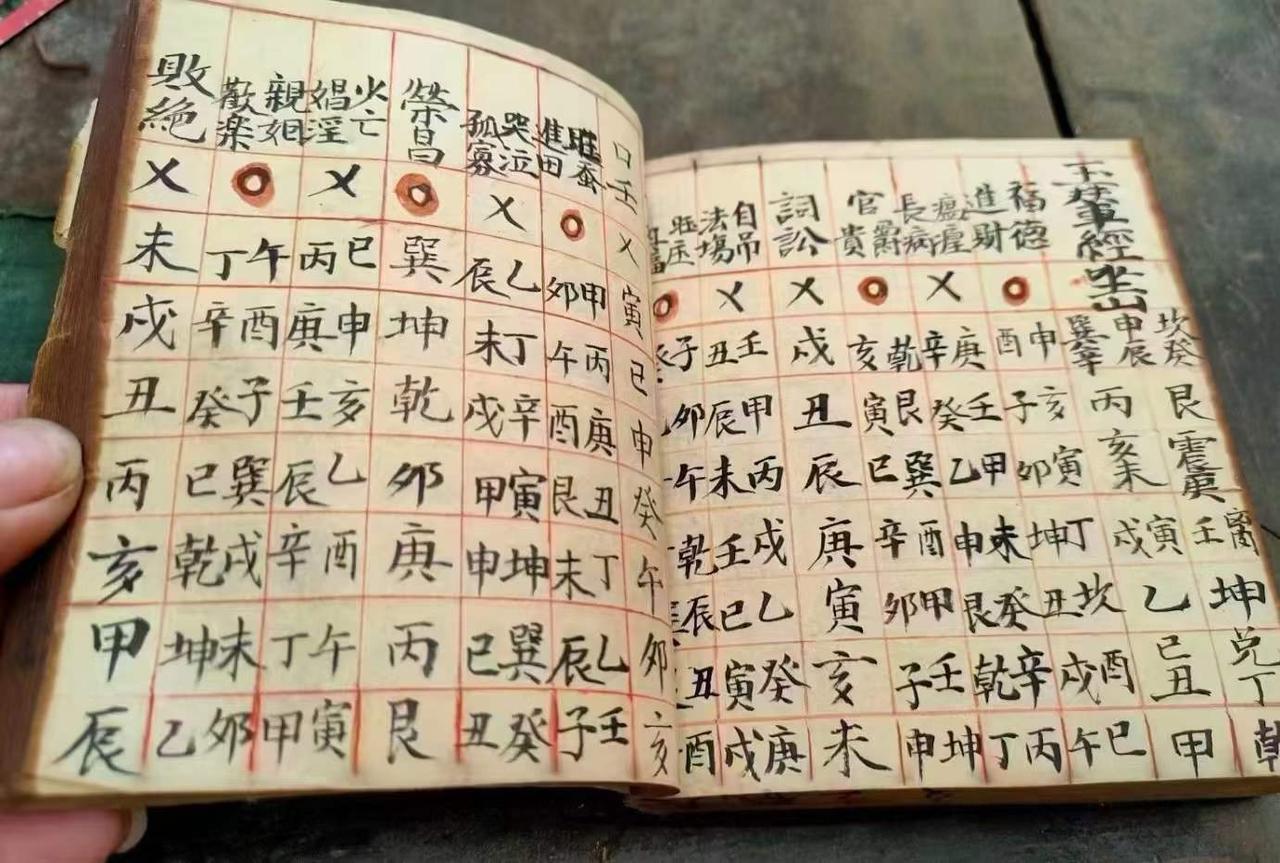 玉輦經坐山
坎癸申辰巽辛
艮丙
震庚亥未
離壬寅戌
坤乙
兌丁巳丑
乾甲
福德進財
申酉
亥子
寅卯
丁坤
坎丑
酉戌
巳午
長病
×
庚辛
壬癸
甲乙
未申
癸艮
辛乾
丙丁
官爵貴
乾亥
艮寅
巽巳
酉辛
甲卯
壬子
坤申
詞訟
×
戌
丑
辰
庚
寅
亥
未
自吊法場
×
壬丑
甲辰
丙未
戌壬
乙巳
癸寅
庚戌
旺庄
子癸
卯
午
乾
辰
丑
酉
口壬
×
寅
巳
申
癸
午
卯
亥
旺蚕進田
甲卯
丙午
庚酉
丑艮
丁未
乙辰
壬子
哭泣孤寡
×
乙辰
丁未
辛戌
寅甲
坤申
巽巳
癸丑
榮昌
巽
坤
乾
卯
庚
丙
艮
火亡娼淫
×
巳丙
申庚
亥壬
乙辰
酉辛
午丁
寅甲
親姻歡楽
午丁
酉辛
子癸
巽巳
戌乾
未坤
卯乙
敗絕
×
未
戌
丑
丙
亥
甲
辰